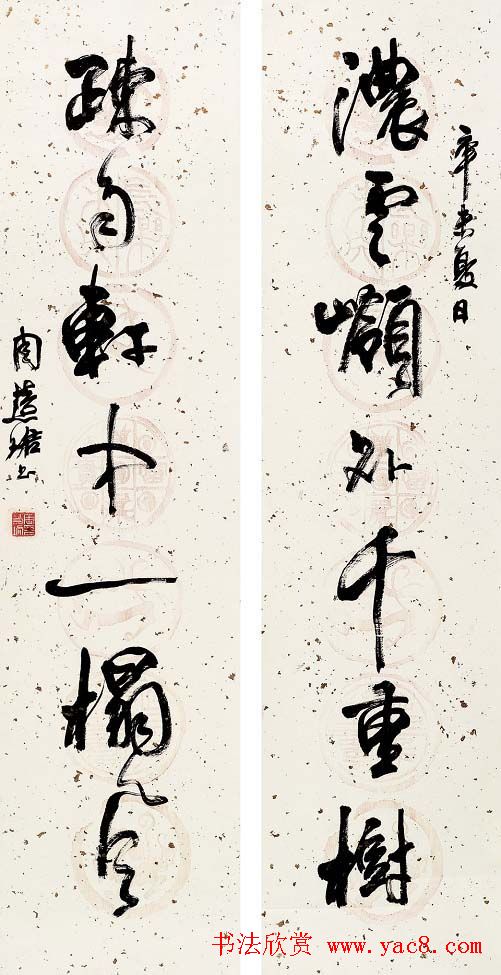 辛未夏日
濃雲嶺外千重樹
疎雨軒中一榻風
周慧珺书
书法欣赏 www.yac8.com